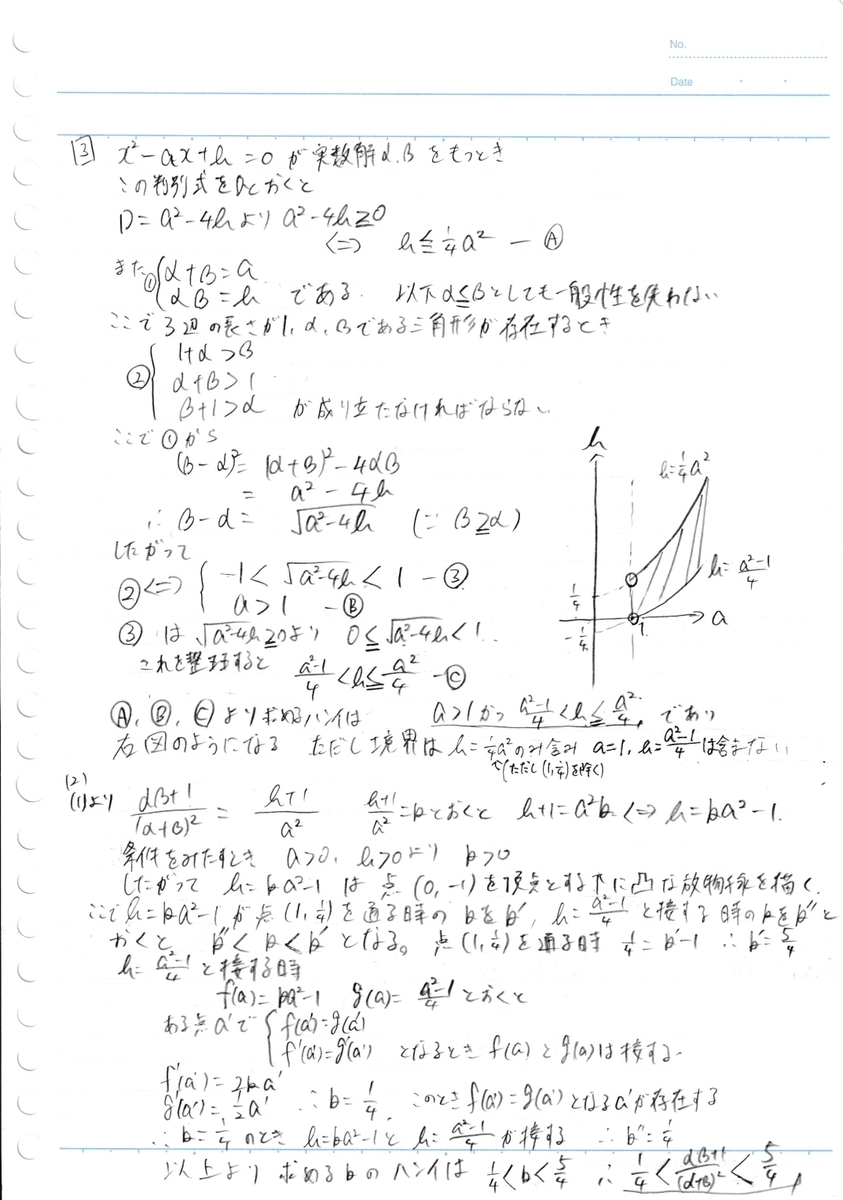 No.
Date
[3] x²-ax+b=0 が実数解α,βをもつとき
この判別式をDとおくと
D=a²-4bより a²-4b≧0
⇔ b≦1/4a² — Ⓐ
また①{α+β=a
αβ=b である. 以下α≦βとしても一般性を失わない
ここで3辺の長さが1,α,βである三角形が存在するとき
②{1+α>β
α+β>1
β+1>α が成り立たなければならない
ここで①から
(β-α)²=(α+β)²-4αβ
= a²-4b
∴ β-α= √(a²-4b) (∵ β≧α)
したがって
②⇔{-1<√(a²-4b)<1 -③
a>1 -Ⓑ
③は√(a²-4b)≧0より 0≦√(a²-4b)<1.
これを整理すると (a²-1)/4<b≦a²/4 -Ⓒ
b
b=1/4a²
b=(a²-1)/4
1/4
-1/4
1
a
Ⓐ,Ⓑ,Ⓒより求めるハンイは a>1かつ (a²-1)/4<b≦a²/4, であり
右図のようになる ただし境界は b=1/4a²のみ含み a=1, b=(a²-1)/4は含まない
↑(ただし(1,1/4)を除く)
(2)
(1)より (αβ+1)/(α+β)²=(b+1)/a² (b+1)/a²=kとおくと b+1=a²k ⇔ b=ka²-1.
条件をみたすとき a>0, b>0より k>0
したがって b=ka²-1 は 点(0,-1)を頂点とする下に凸な放物線を描く.
ここでb=ka²-1が点(1,1/4)を通る時のkをk', b=(a²-1)/4と接する時のkをk''と
おくと k''<k<k'となる。点(1,1/4)を通る時 1/4=k'-1 ∴k'=5/4
b=(a²-1)/4と接する時
f(a)=ka²-1 g(a)=(a²-1)/4とおくと
ある点a'で{f(a')=g(a')
f'(a')=g'(a') となるとき f(a)とg(a)は接する.
f'(a')=2ka'
g'(a')=1/2a' ∴k=1/4. このときf(a')=g(a')となるa'が存在する
∴k=1/4のとき b=ka²-1とb=(a²-1)/4が接する ∴k''=1/4
以上より 求めるkのハンイは 1/4<k<5/4 ∴ 1/4<(αβ+1)/(α+β)²<5/4,